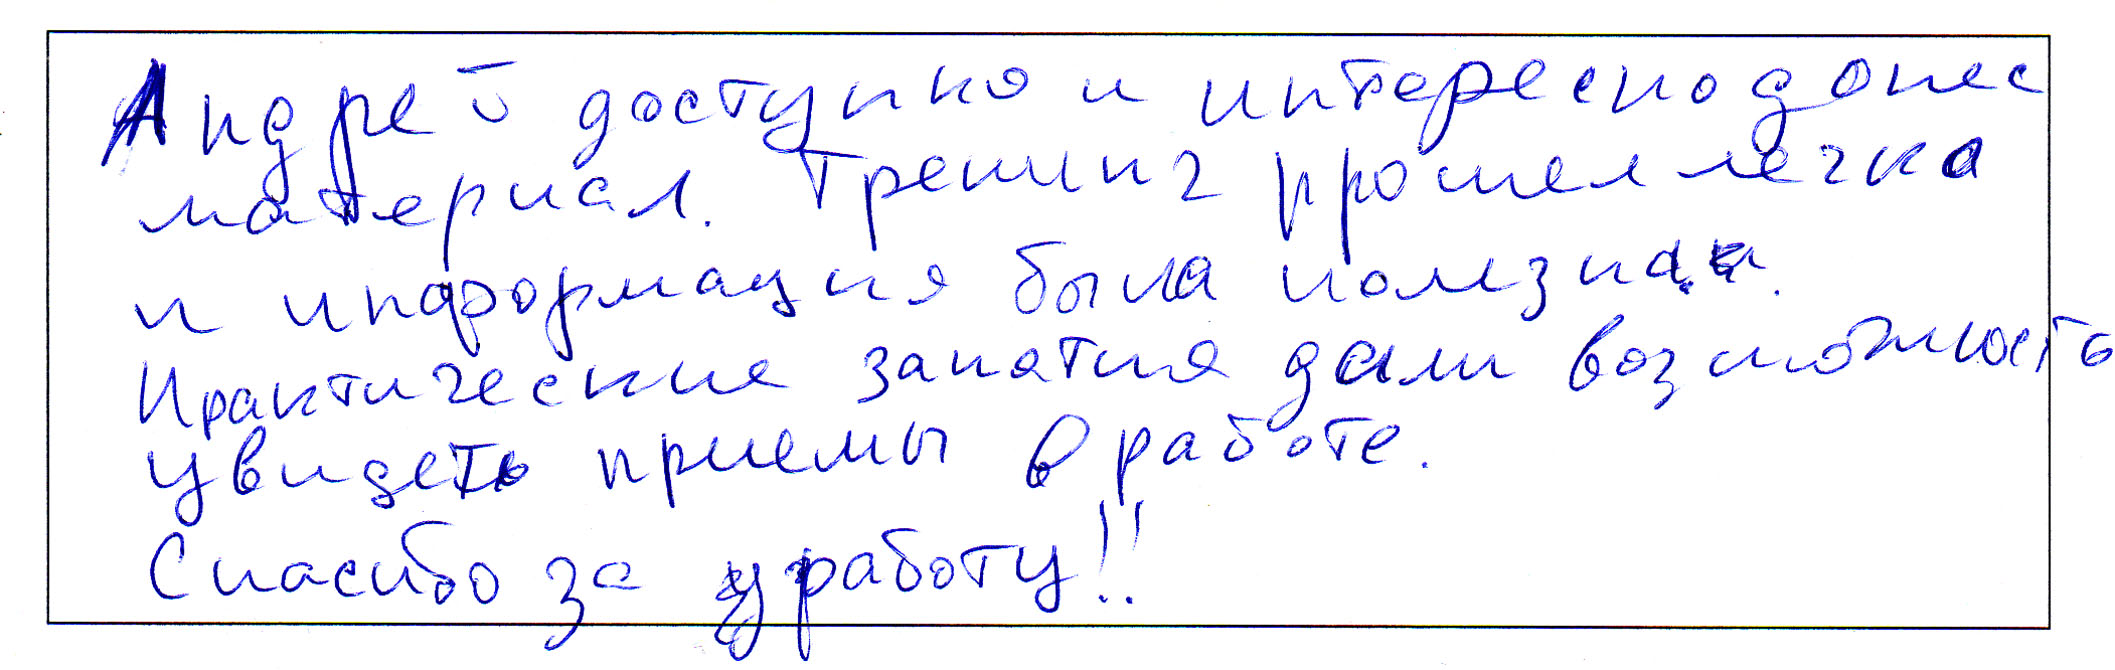 Андрей доступно и интересно донес
материал. Тренинг прошел легко
и информация была полезна.
Практические занятия дали возможность
увидеть приемы в работе.
Спасибо за работу!!